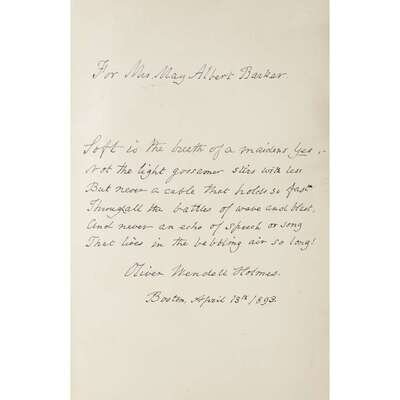 For Mrs. May Albert Barker.
Soft is the breath of a maidens Yes,
Not the light gossamer stirs with less
But never a cable that holds so fast
Through all the battles of wave and blast,
And never an echo of speech or song
That lives in the babbling air so long!
Oliver Wendell Holmes.
Boston, April 13th 1893.